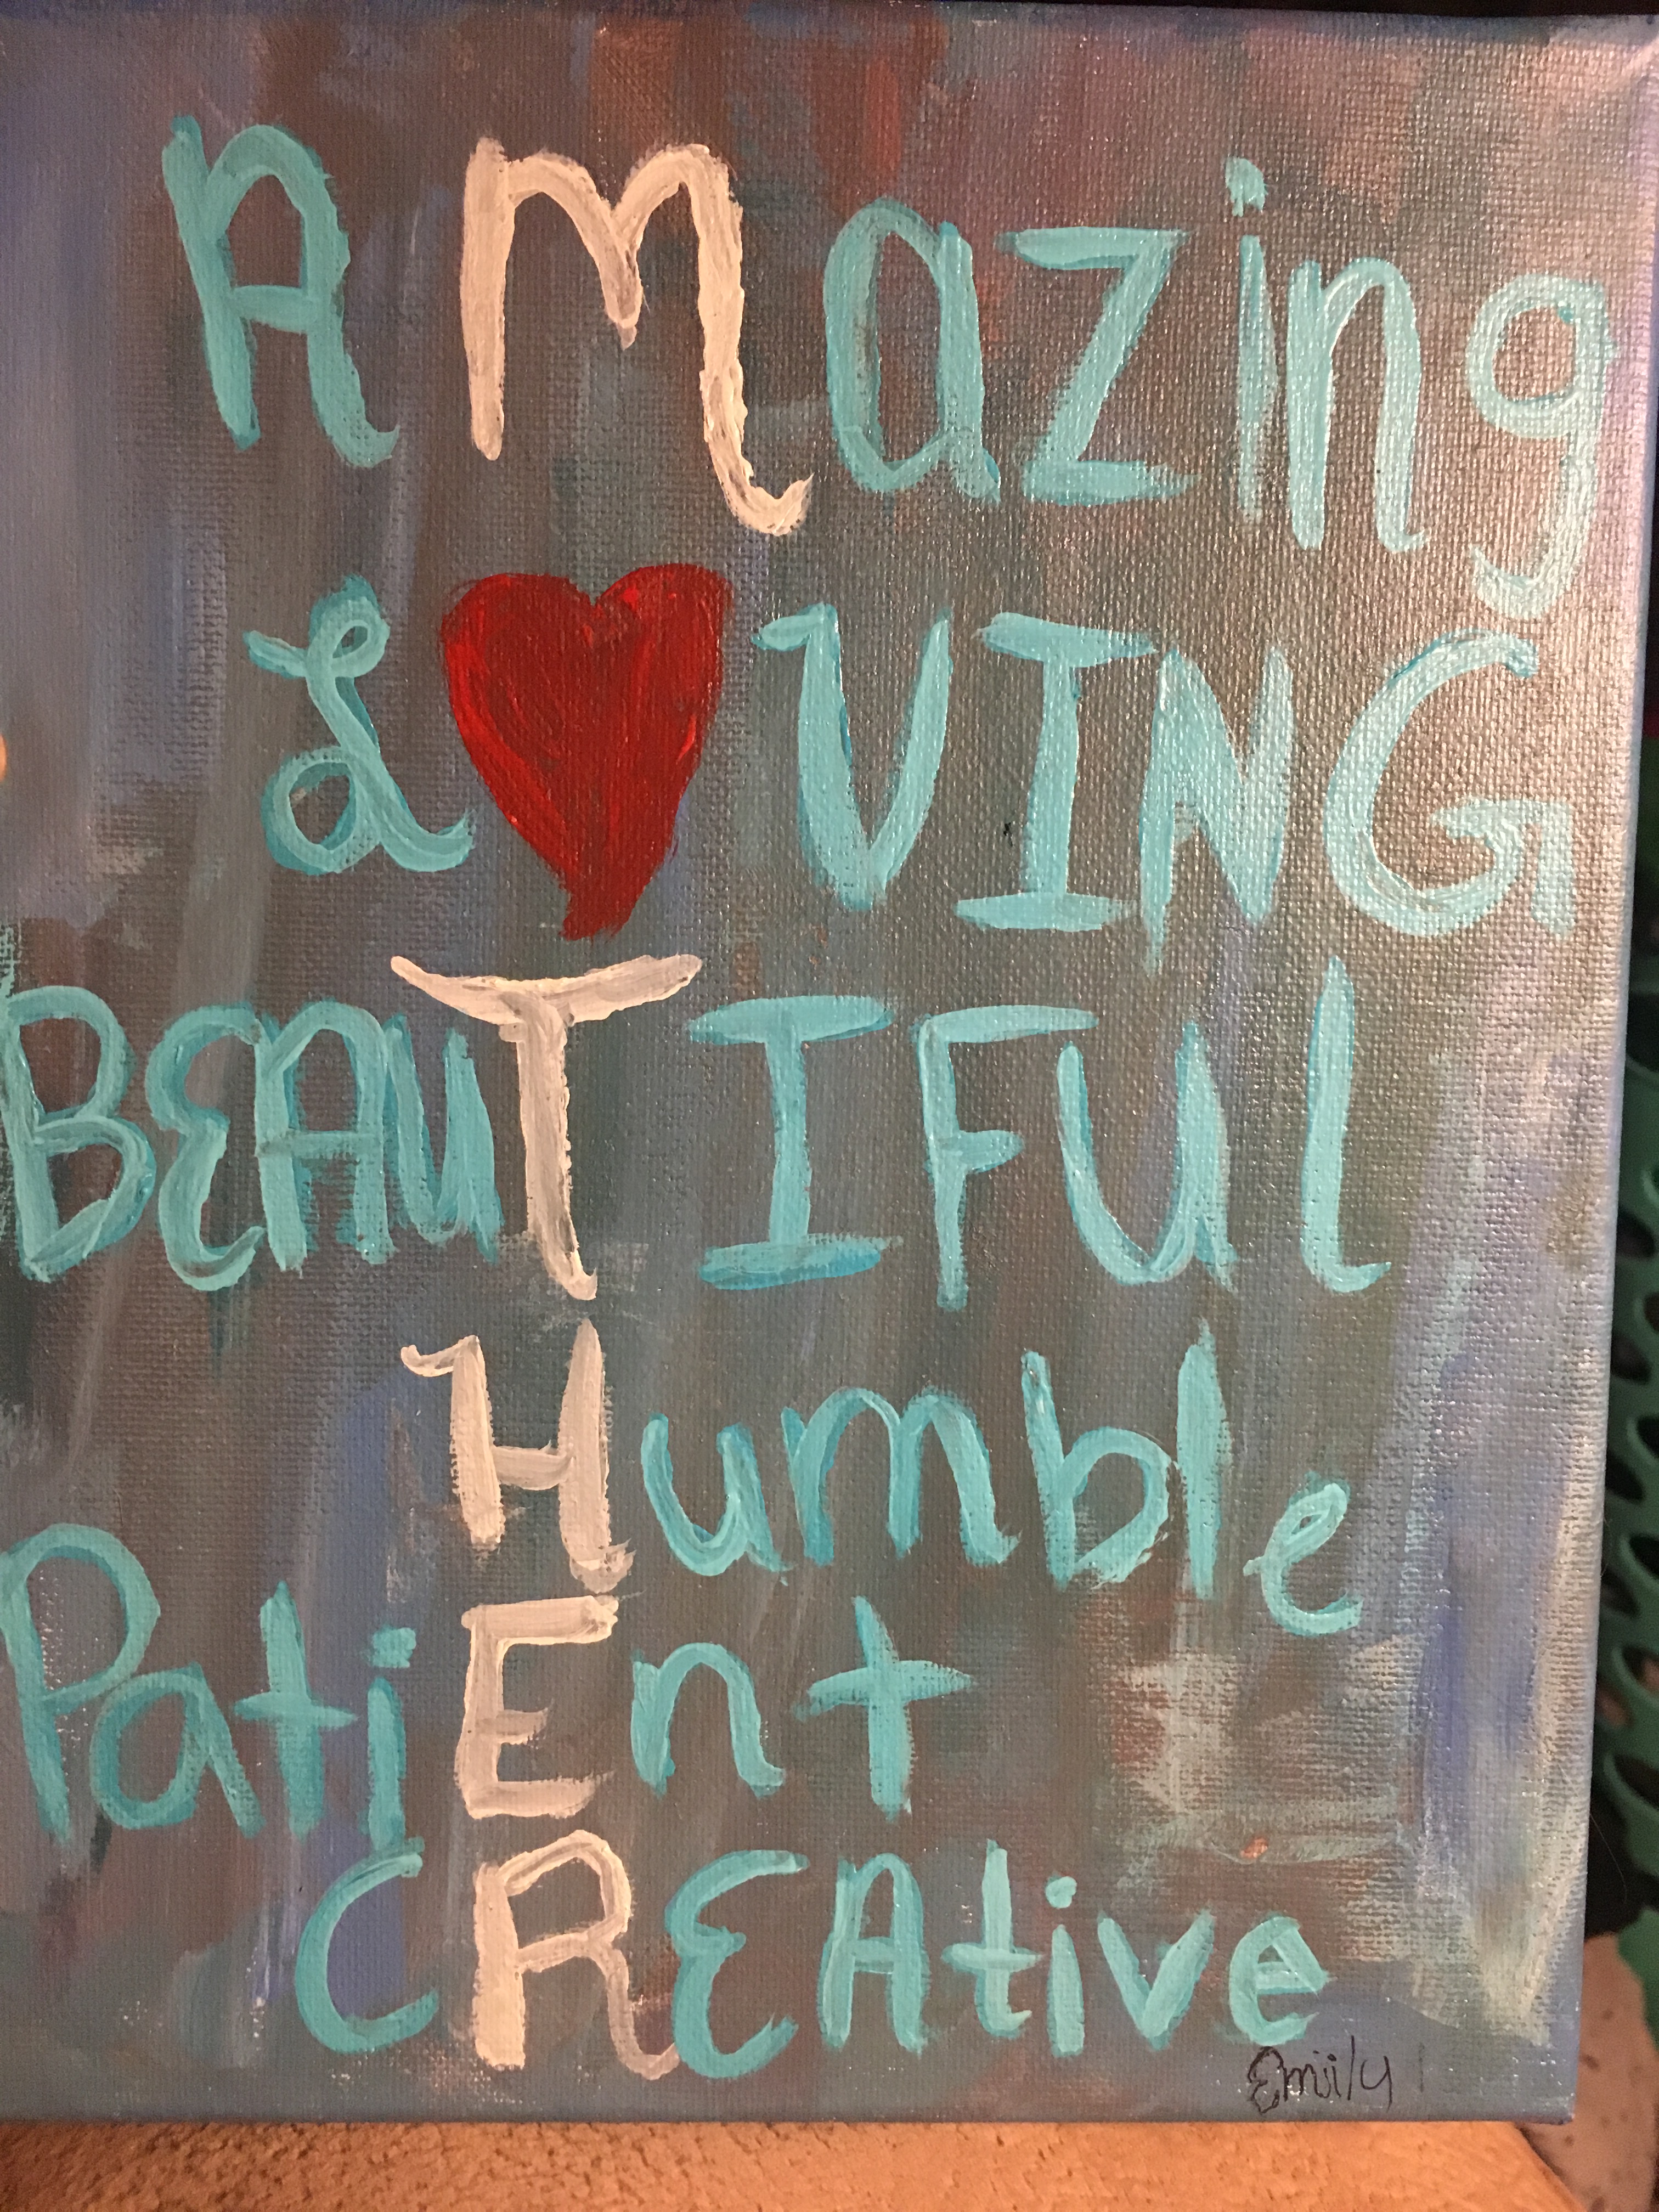 AMazing
L❤VING
BEAUTIFUl
Humble
PatiEnt
CREAtive
Emiily